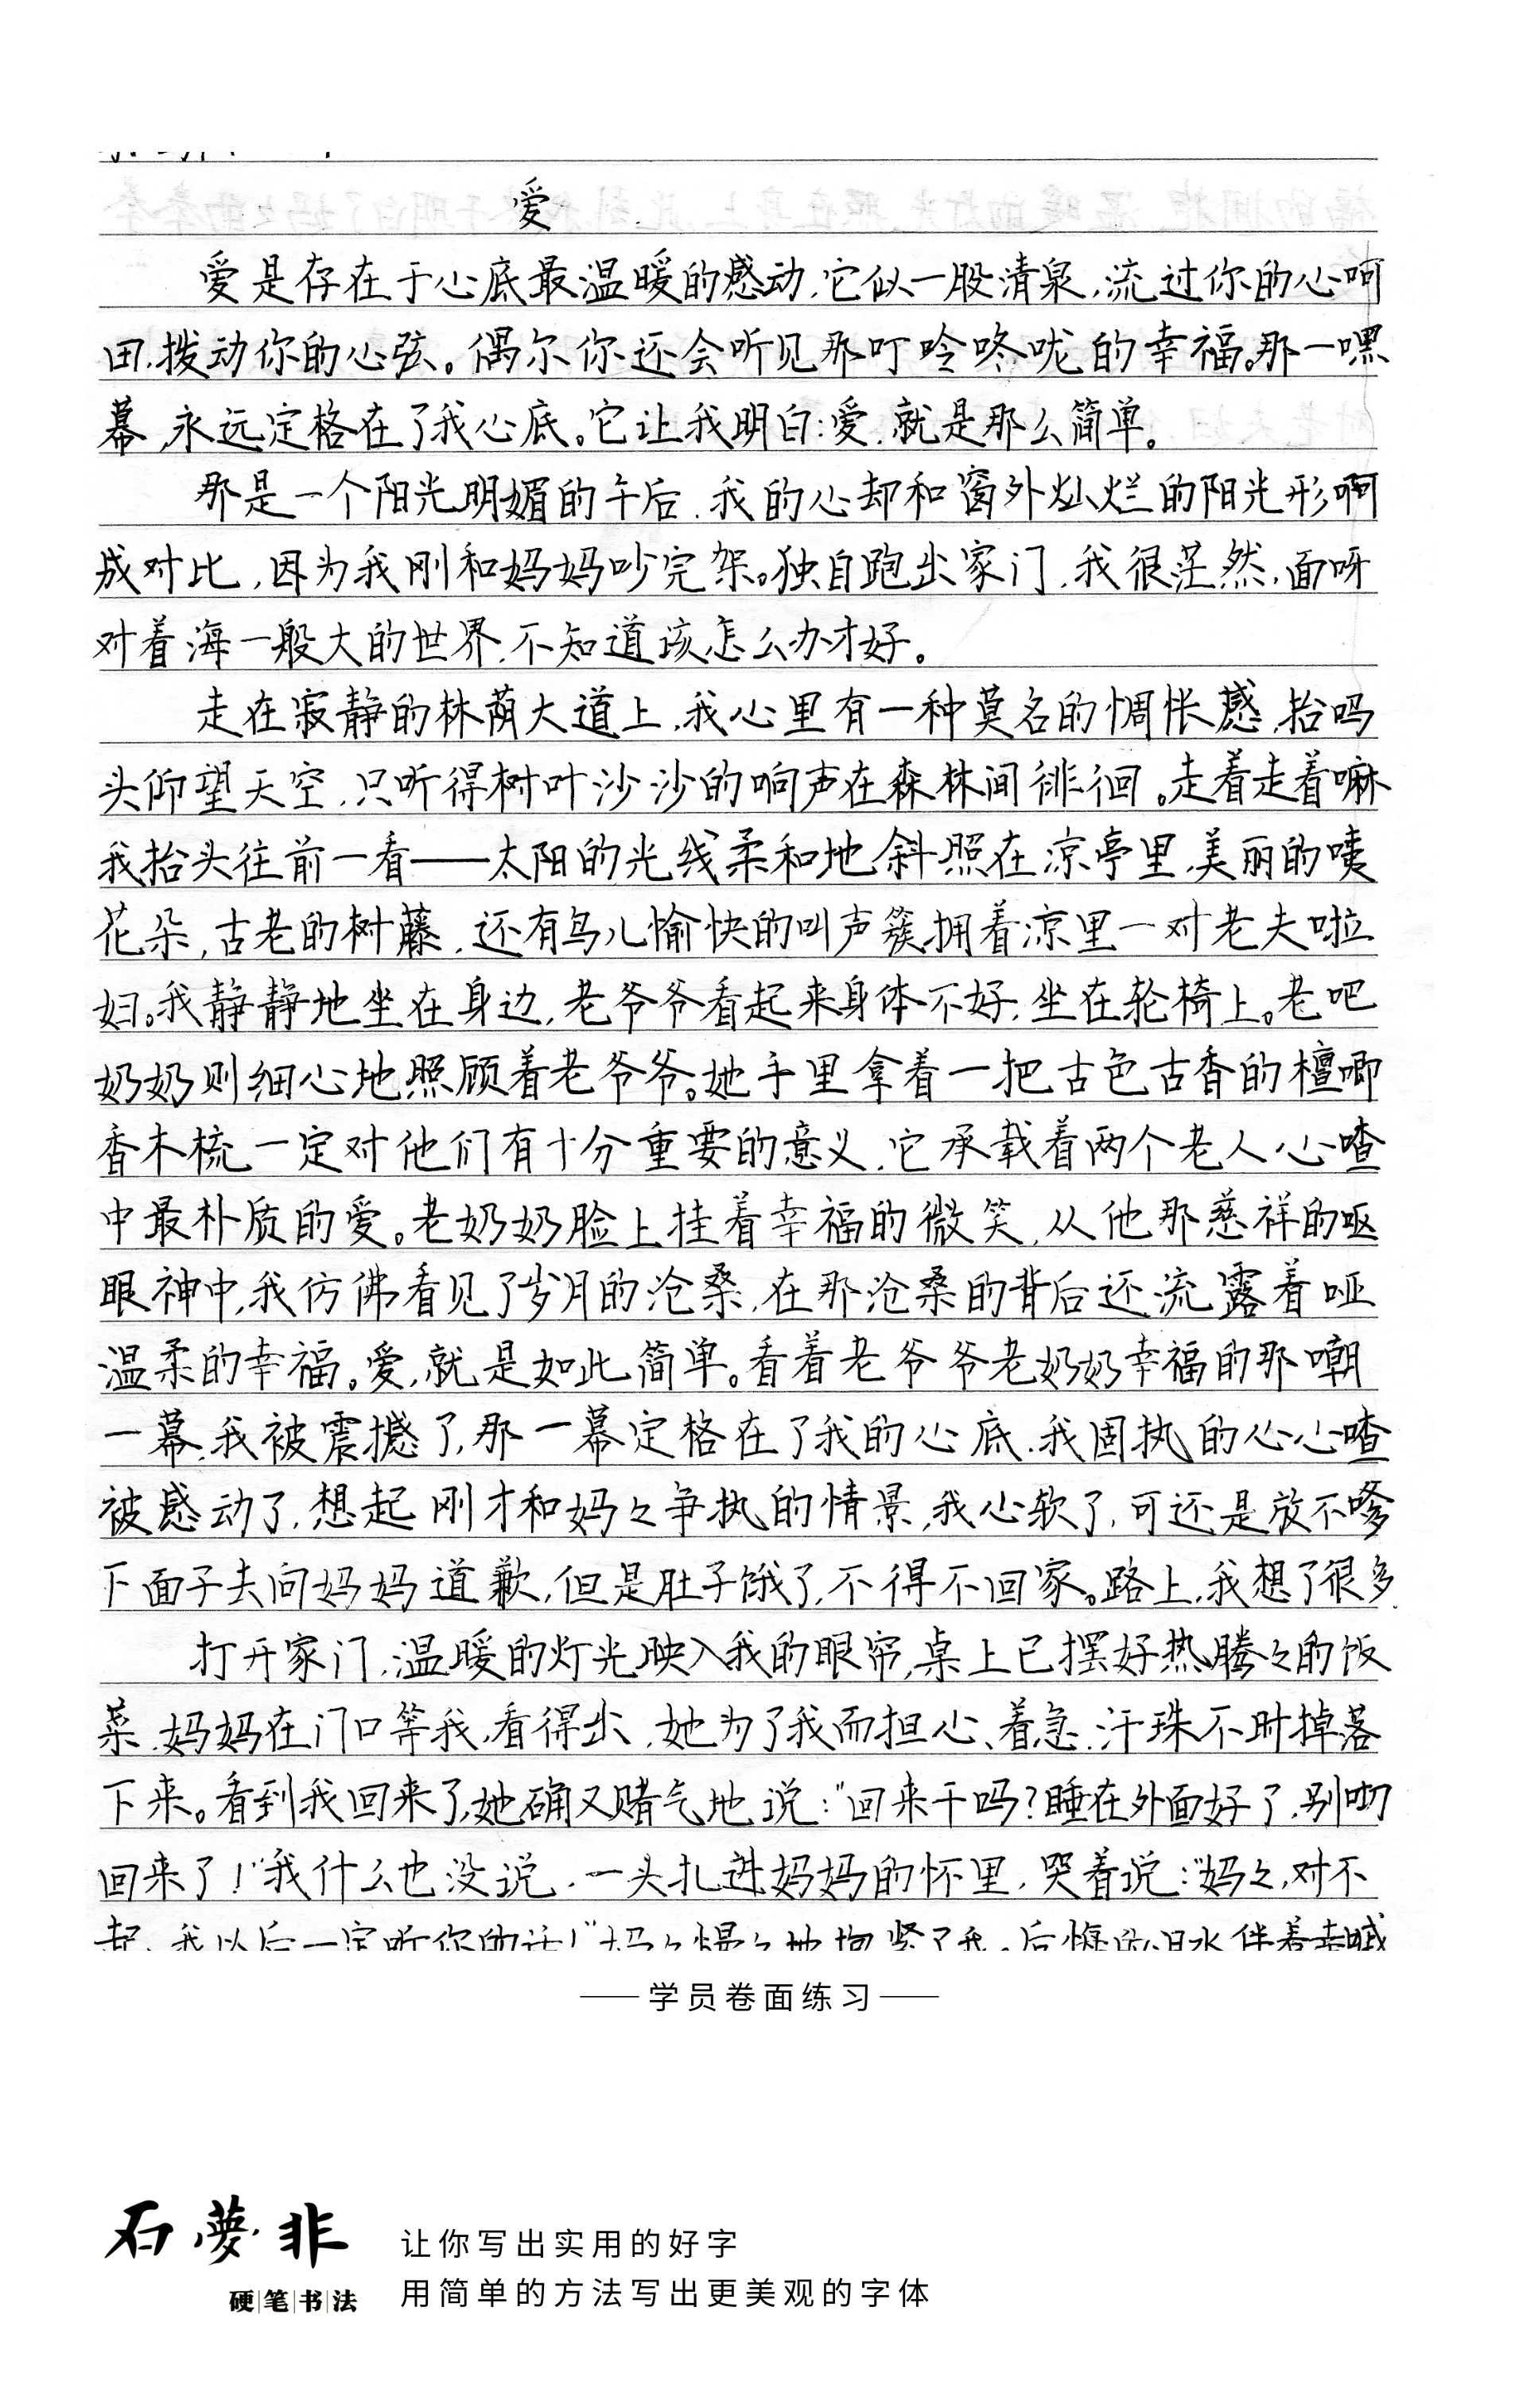 爱
爱是存在于心底最温暖的感动,它似一股清泉,流过你的心呵
田,拨动你的心弦。偶尔你还会听见那叮呤咚咙的幸福。那一嘿
幕,永远定格在了我心底。它让我明白:爱,就是那么简单。
那是一个阳光明媚的午后,我的心却和窗外灿烂的阳光形啊
成对比,因为我刚和妈妈吵完架。独自跑出家门,我很茫然,面呀
对着海一般大的世界,不知道该怎么办才好。
走在寂静的林荫大道上,我心里有一种莫名的惆怅感,抬吗
头仰望天空,只听得树叶沙沙的响声在森林间徘徊。走着走着嘛
我抬头往前一看——太阳的光线柔和地斜照在凉亭里,美丽的咦
花朵,古老的树藤,还有鸟儿愉快的叫声簇拥着凉里一对老夫啦
妇。我静静地坐在身边,老爷爷看起来身体不好,坐在轮椅上。老吧
奶奶则细心地照顾着老爷爷。她手里拿着一把古色古香的檀唧
香木梳一定对他们有十分重要的意义,它承载着两个老人心喳
中最朴质的爱。老奶奶脸上挂着幸福的微笑,从他那慈祥的呕
眼神中,我仿佛看见了岁月的沧桑,在那沧桑的背后还流露着哑
温柔的幸福。爱,就是如此简单。看着老爷爷老奶奶幸福的那嘲
一幕,我被震撼了,那一幕定格在了我的心底,我固执的心心喳
被感动了,想起刚才和妈々争执的情景,我心软了,可还是放不嗲
下面子去向妈妈道歉,但是肚子饿了,不得不回家。路上,我想了很多.
打开家门,温暖的灯光映入我的眼帘,桌上已摆好热腾々的饭
菜,妈妈在门口等我,看得出,她为了我而担心、着急,汗珠不时掉落
下来。看到我回来了,她确又赌气地说:"回来干吗?睡在外面好了,别叨
回来了!"我什么也没说,一头扎进妈妈的怀里,哭着说:"妈々,对不
起,我以后一定听你的话!"妈々慢々地抱紧了我。后悔的泪水伴着幸嘁
——学员卷面练习——
石夢非
硬笔书法
让你写出实用的好字
用简单的方法写出更美观的字体